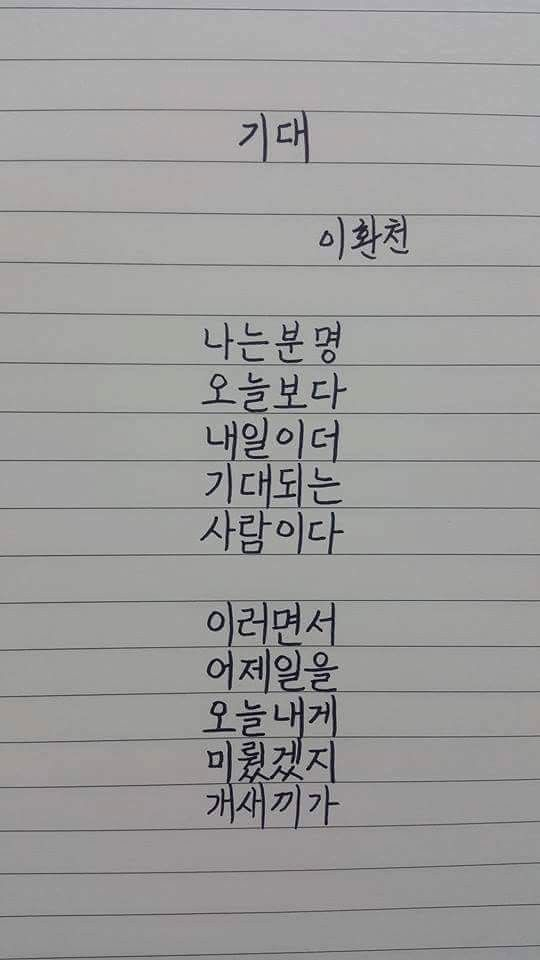 기대
이환천
나는분명
오늘보다
내일이더
기대되는
사람이다
이러면서
어제일을
오늘내게
미뤘겠지
개새끼가